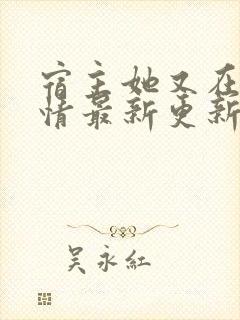 宿主她又在
情最新更新
吴永红